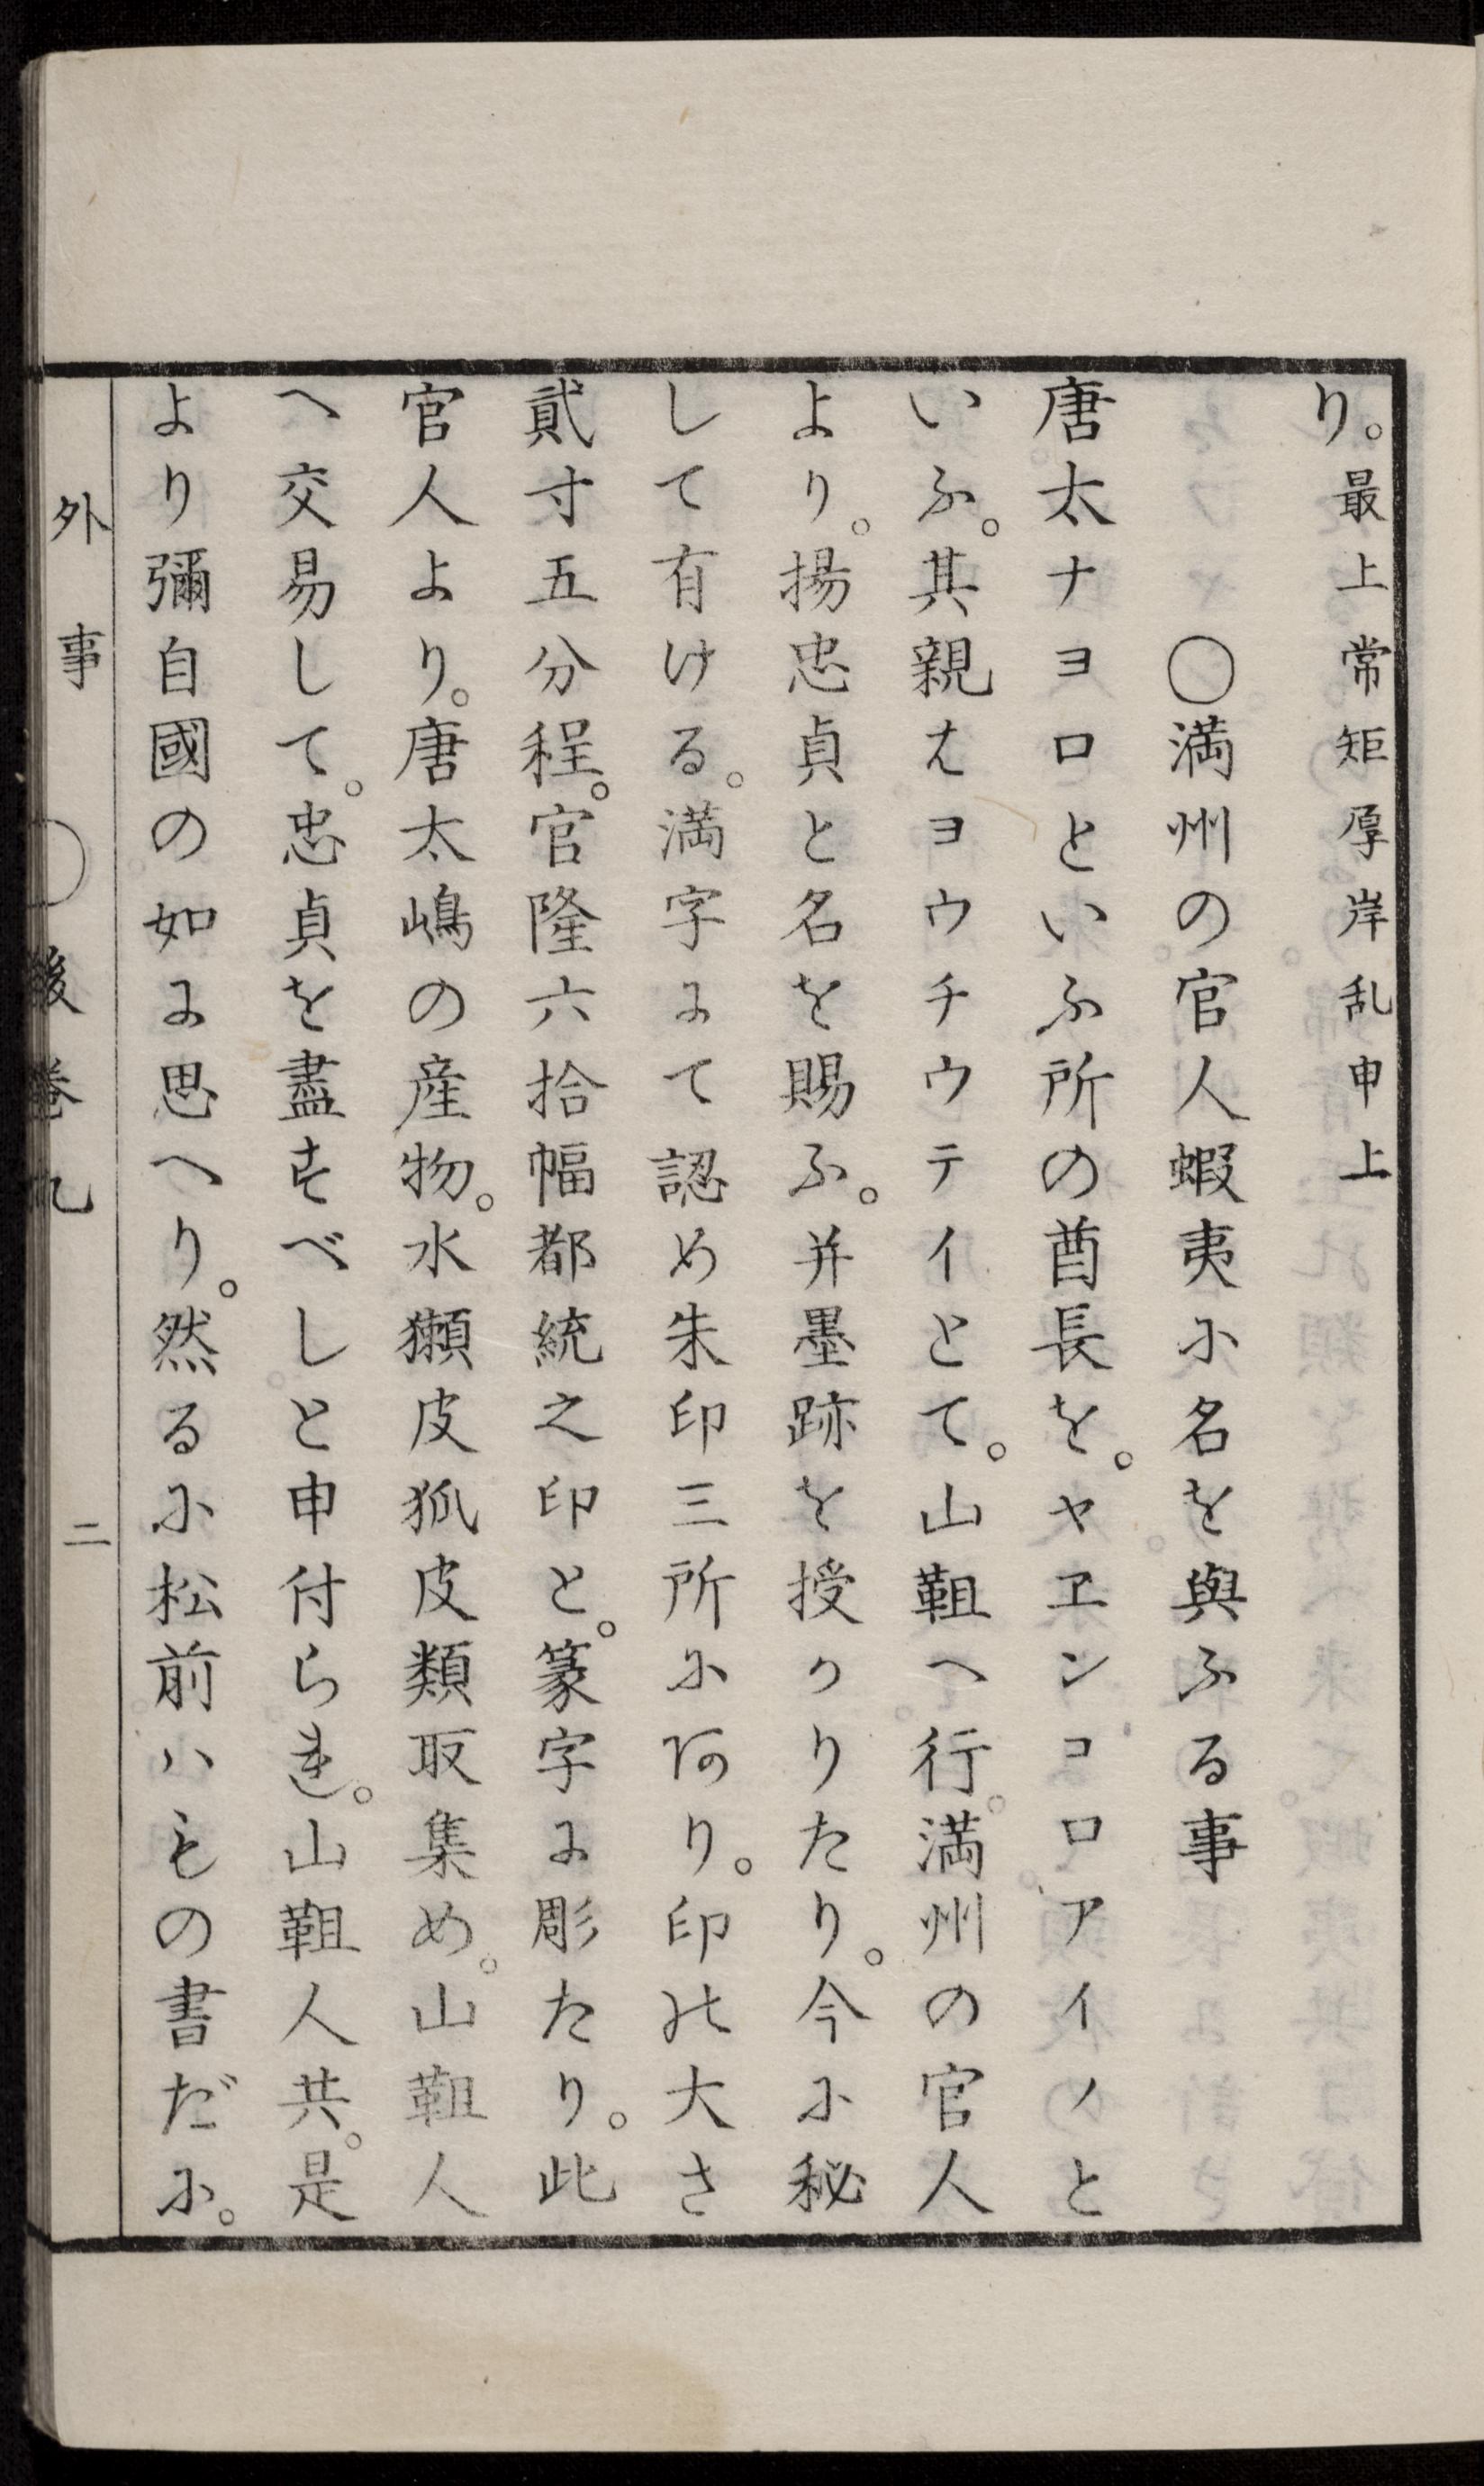 り。最上常矩厚岸乱申上
○満州の官人蝦夷に名を與ふる事
唐太ナヨロといふ所の酋長を。ヤヱンコロアイノと
いふ。其親はヨウチウテイとて。山靼へ行。満州の官人
より。揚忠貞と名を賜ふ。并墨跡を授かりたり。今に秘
して有ける。満字にて認め朱印三所にあり。印の大さ
貮寸五分程。官隆六拾幅都統之印と。篆字に彫たり。此
官人より。唐太嶋の産物。水獺皮狐皮類取集め。山靼人
へ交易して。忠貞を盡すべしと申付られ。山靼人共。是
より彌自國の如に思へり。然るに松前ハもの書だに。
外事 ○後巻九 二